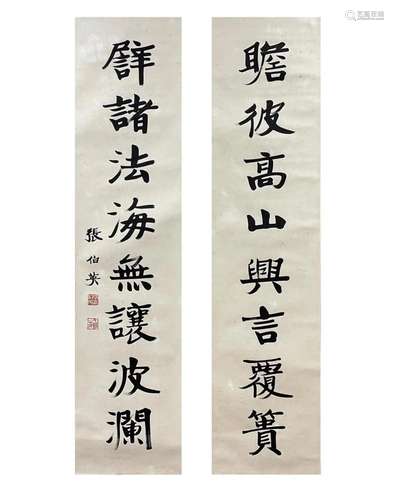 瞻彼高山興言覆簣
譬諸法海無讓波瀾
張伯英